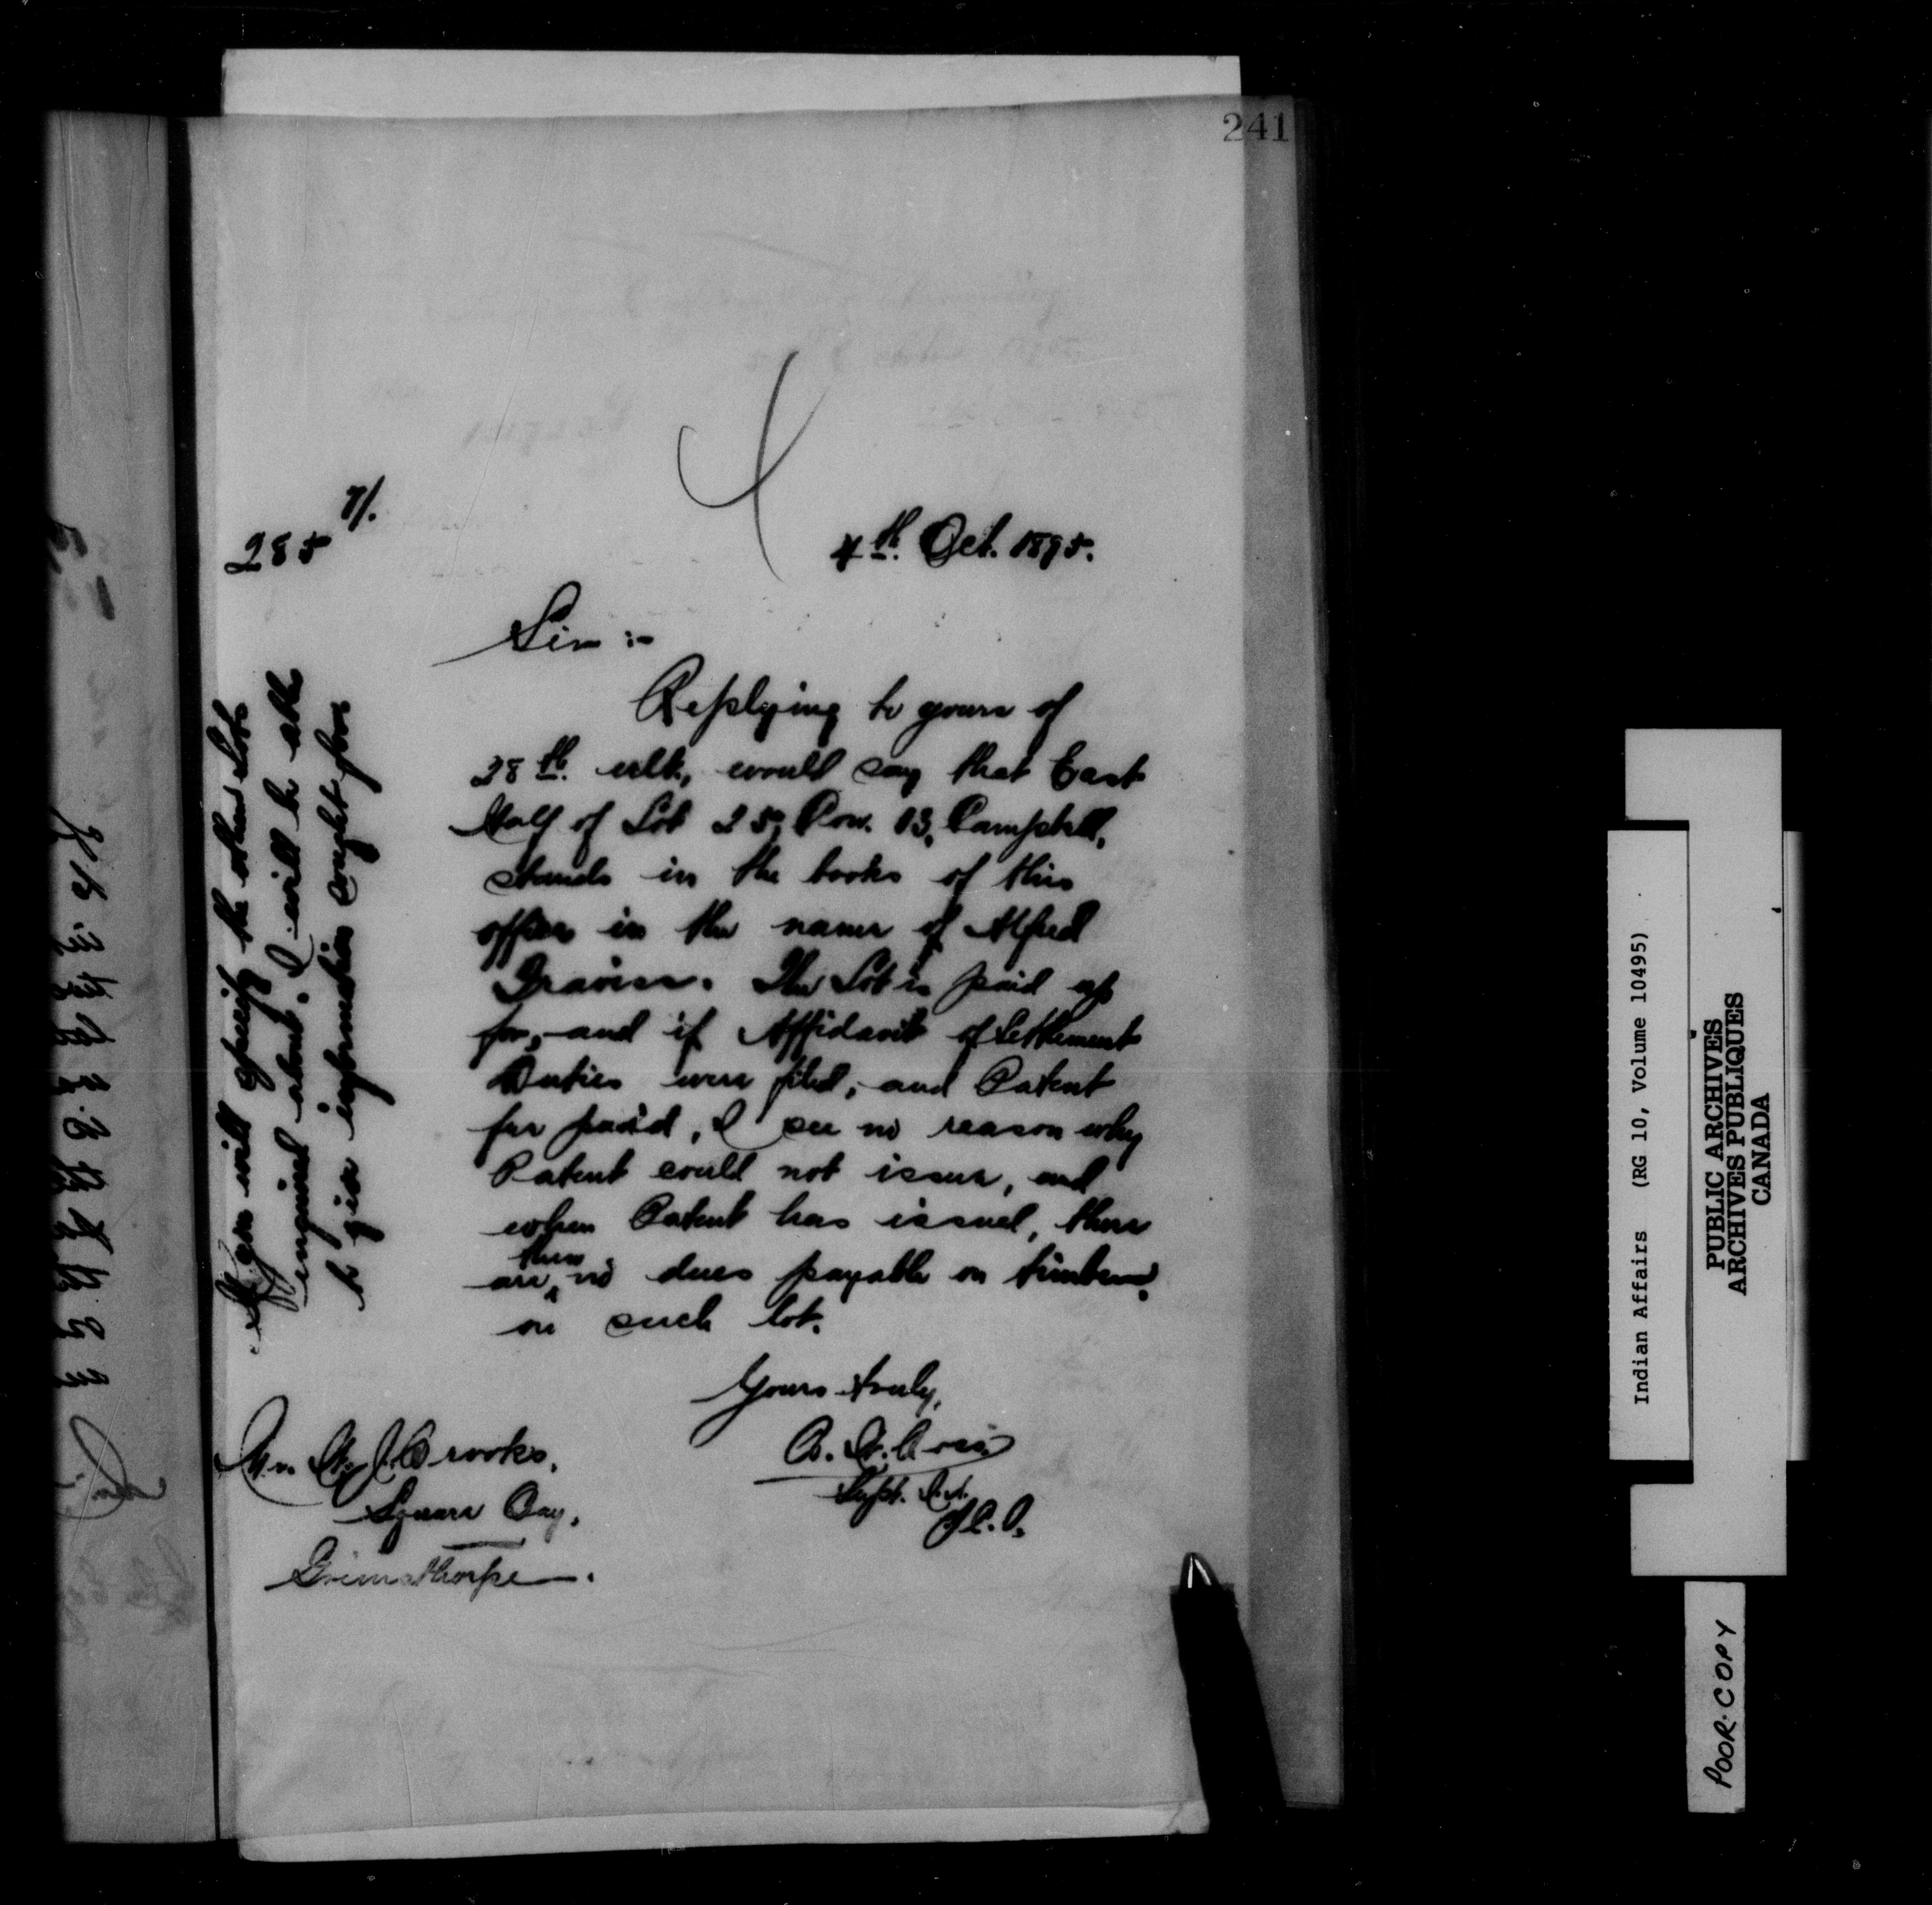 241
285 7/.
4th. Oct. 1895.
Sir :-
Replying to yours of
28th. ult., would say that East
Half of Lot 25, Con. 13, Campbell,
stands in the books of this
office in the name of Alfred
The Lot is paid up
for, and if Affidavit of Settlement
Duties were filed, and Patent
fee paid, I see no reason why
Patent could not issue, and
when Patent has issued, there
are then no dues payable on timber
on such lot.
Yours truly,
B. W. Ross
Supt. I.A.
Mr. Brooks,
Square Bay,
Grimsthorpe.
If you will specify the other Lots
enquired about, I will be able
to give information sought for
Indian Affairs (RG 10, Volume 10495)
PUBLIC ARCHIVES
ARCHIVES PUBLIQUES
CANADA
POOR COPY